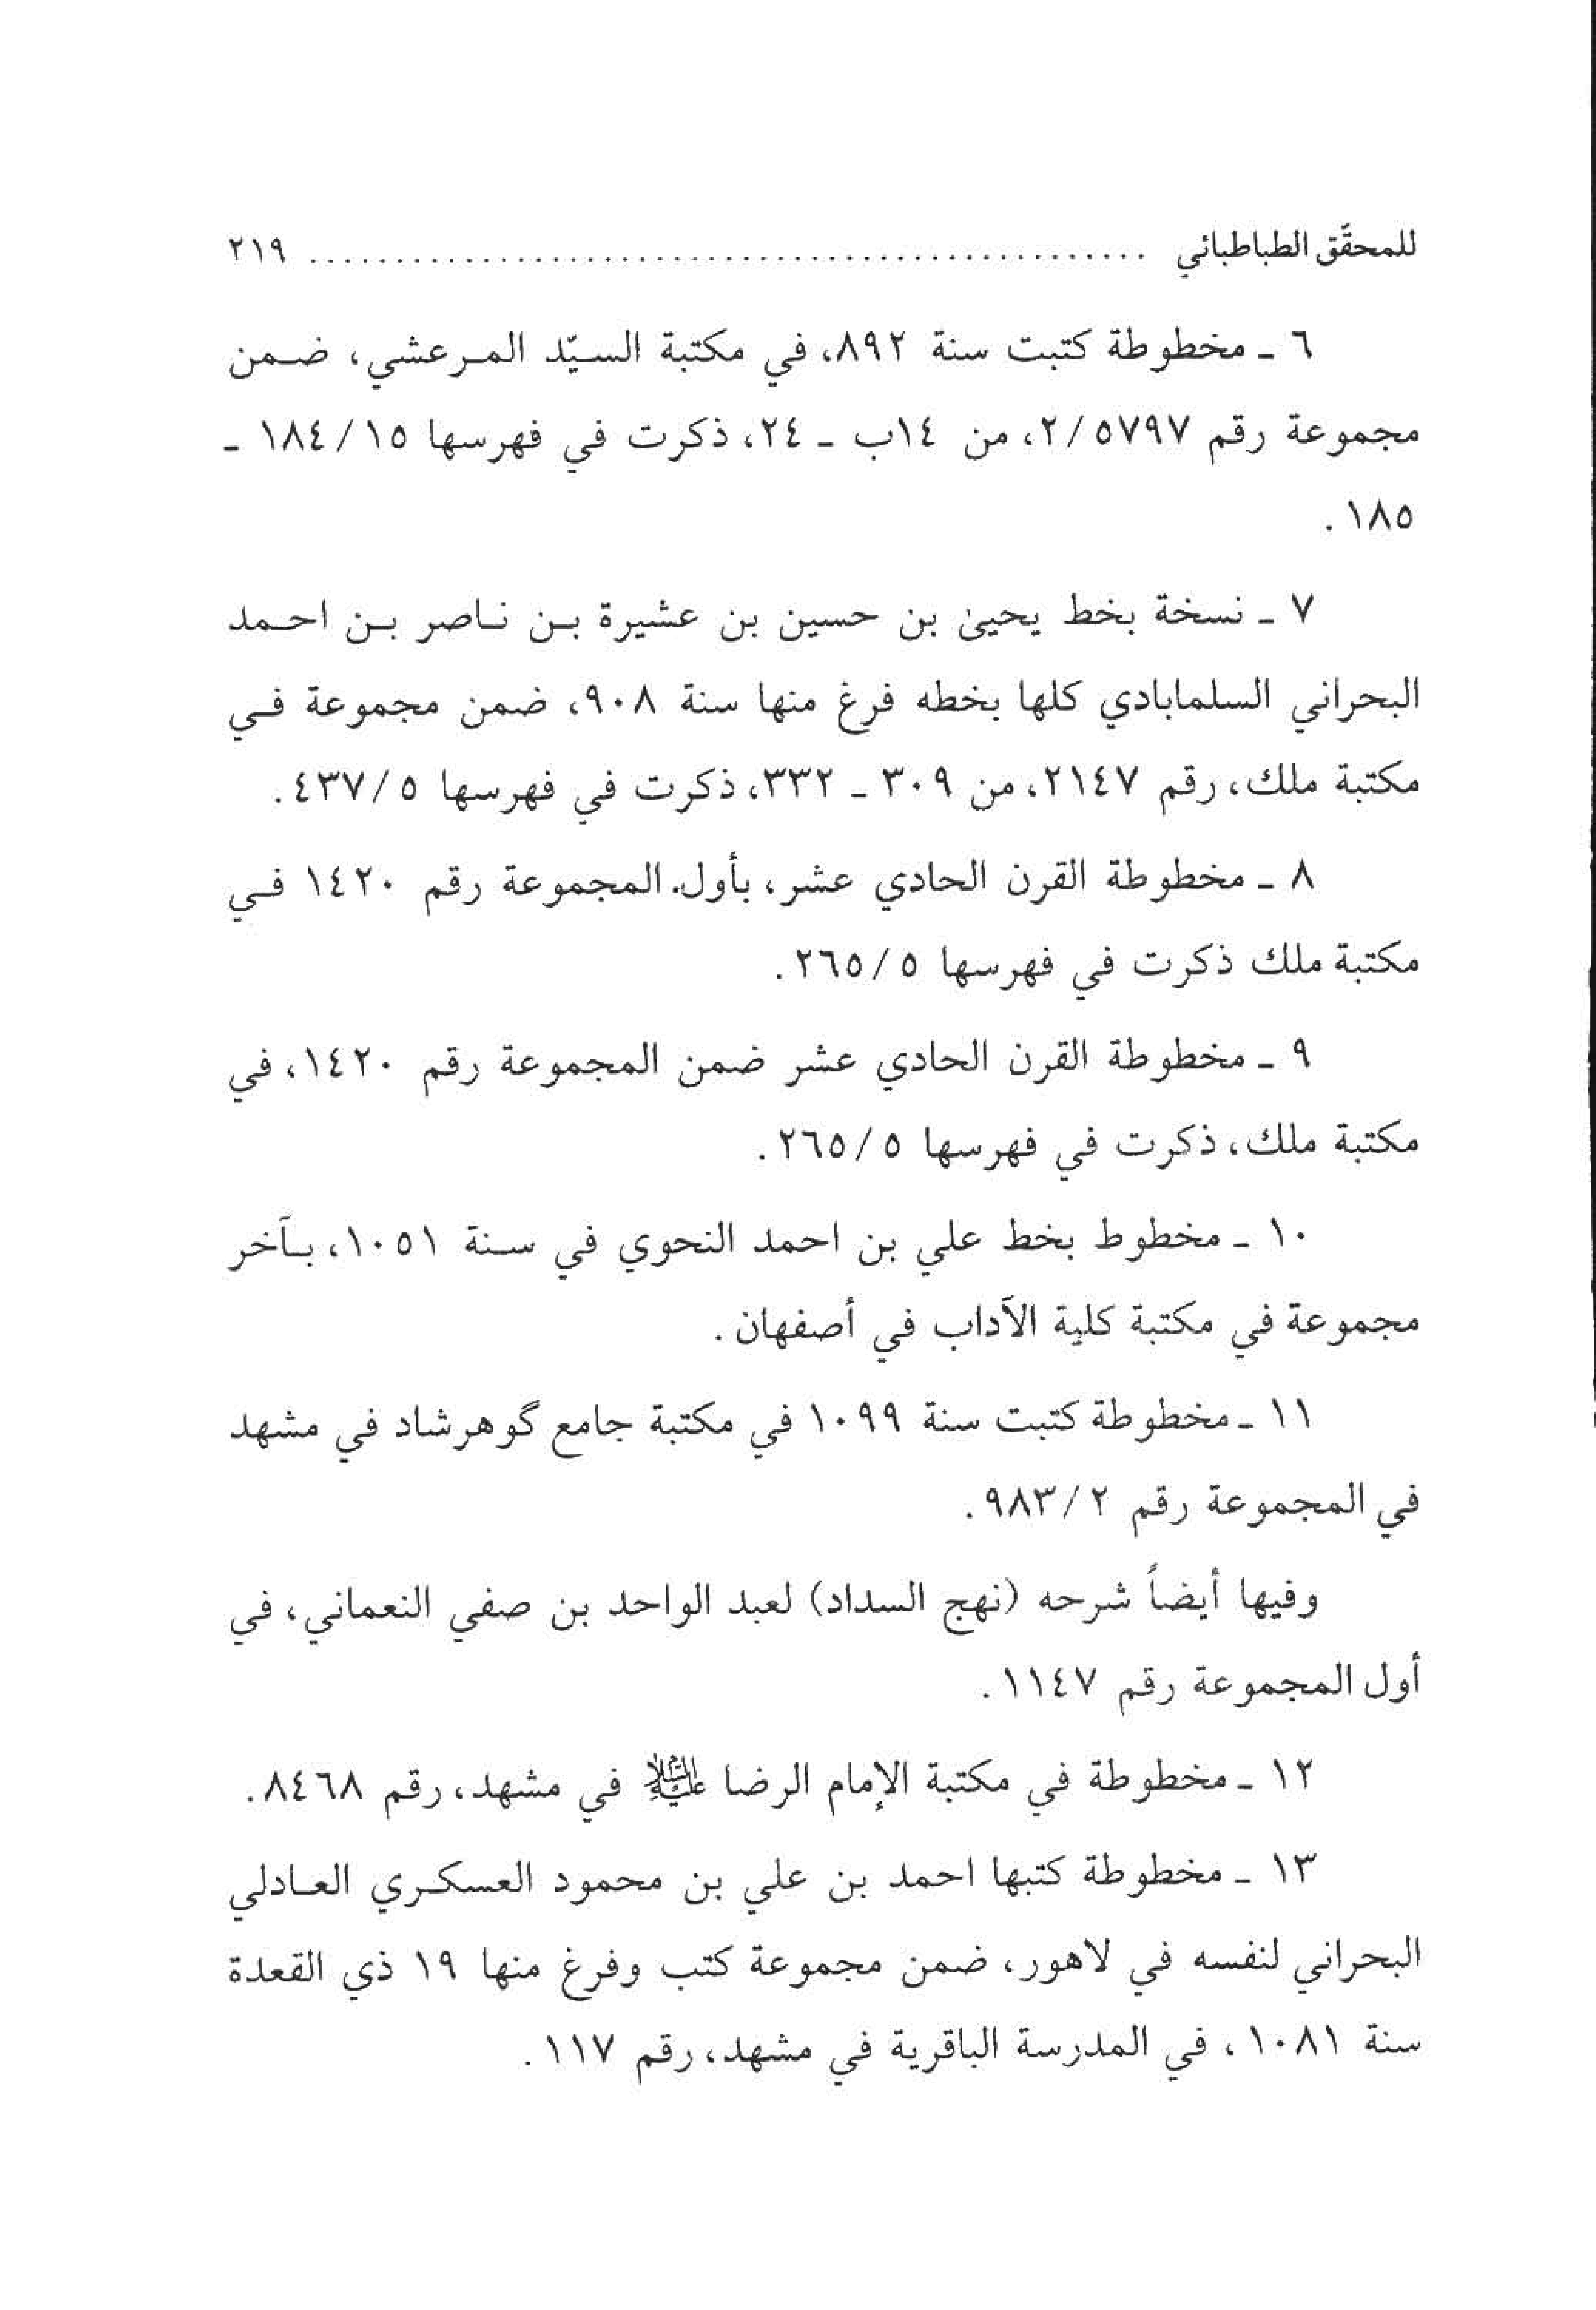 للمحقّق الطباطبائي ................................................ ٢١٩
٦ ـ مخطوطة كتبت سنة ٨٩٢، في مكتبة السيّد المرعشي، ضمن
مجموعة رقم ٢/٥٧٩٧، من ١٤ب ـ ٢٤، ذكرت في فهرسها ١٨٤/١٥ ـ
١٨٥.
٧ ـ نسخة بخط يحيىٰ بن حسين بن عشيرة بن ناصر بن احمد
البحراني السلمابادي كلها بخطه فرغ منها سنة ٩٠٨، ضمن مجموعة في
مكتبة ملك، رقم ٢١٤٧، من ٣٠٩ ـ ٣٣٢، ذكرت في فهرسها ٤٣٧/٥.
٨ ـ مخطوطة القرن الحادي عشر، بأول. المجموعة رقم ١٤٢٠ في
مكتبة ملك ذكرت في فهرسها ٢٦٥/٥.
٩ ـ مخطوطة القرن الحادي عشر ضمن المجموعة رقم ١٤٢٠، في
مكتبة ملك، ذكرت في فهرسها ٢٦٥/٥.
١٠ ـ مخطوط بخط علي بن احمد النحوي في سنة ١٠٥١، بآخر
مجموعة في مكتبة كلية الآداب في أصفهان.
١١ ـ مخطوطة كتبت سنة ١٠٩٩ في مكتبة جامع گوهرشاد في مشهد
في المجموعة رقم ٩٨٣/٢.
وفيها أيضاً شرحه (نهج السداد) لعبد الواحد بن صفي النعماني، في
أول المجموعة رقم ١١٤٧.
١٢ ـ مخطوطة في مكتبة الإمام الرضا عليه السلام في مشهد، رقم ٨٤٦٨.
١٣ ـ مخطوطة كتبها احمد بن علي بن محمود العسكري العادلي
البحراني لنفسه في لاهور، ضمن مجموعة كتب وفرغ منها ١٩ ذي القعدة
سنة ١٠٨١، في المدرسة الباقرية في مشهد، رقم ١١٧.